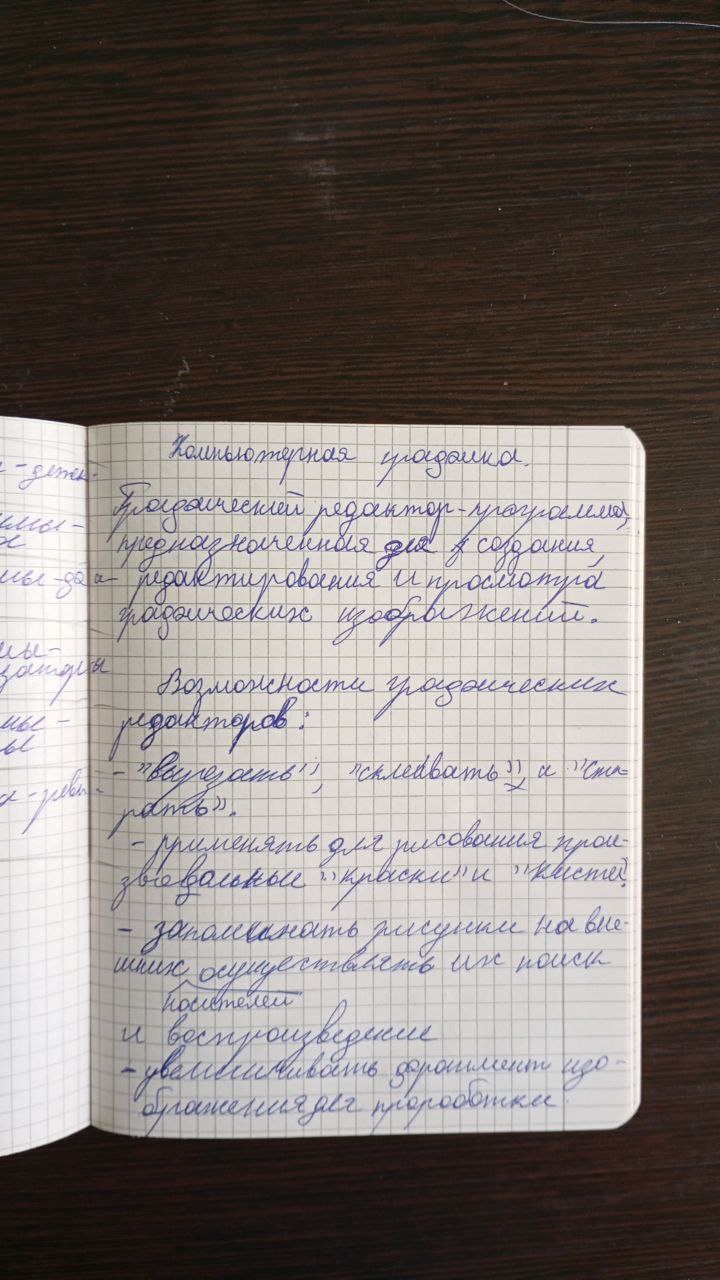 Компьютерная графика.
Графический редактор-программа,
предназначенная для создания,
редактирования и просмотра
графических изображений.
Возможности графических
редакторов:
- "вырезать", "склеивать", и "сти-
рать".
- применять для рисования прои-
звольные "краски" и "кисте
- запоминать рисунки на вне-
шних осуществлять их поиск
носителей
и воспроизведение
- увеличивать изо-
бражения для проработки.